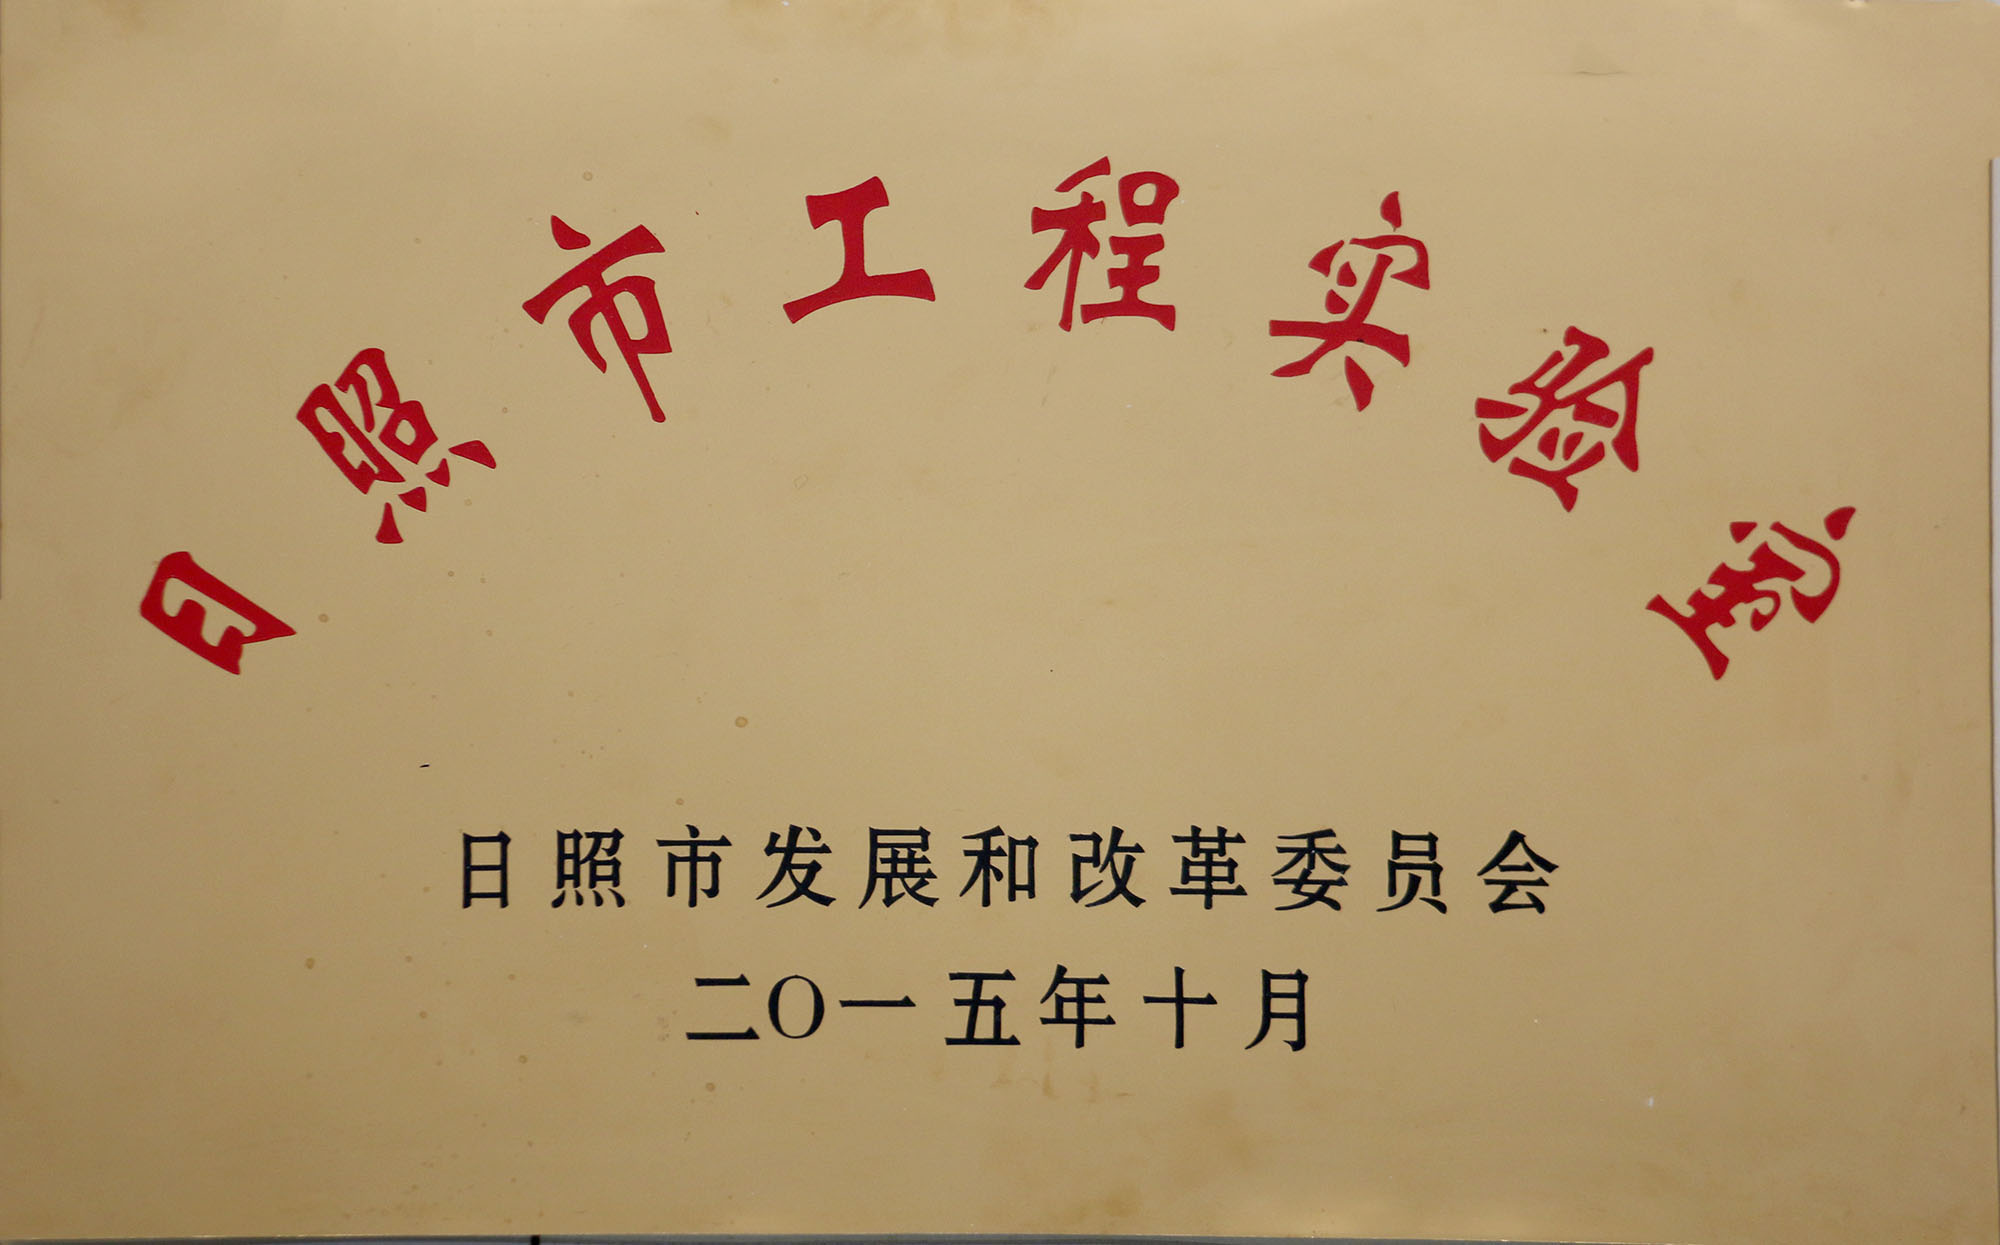 日照市工程实验室
日照市发展和改革委员会
二〇一五年十月